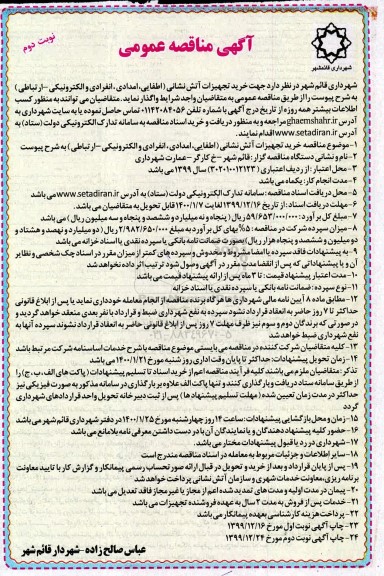 نوبت دوم
آگهی مناقصه عمومی
شهرداری قائمشهر
شهرداری قائم شهر در نظر دارد جهت خرید تجهیزات آتش نشانی (اطفایی، امدادی، انفرادی و الکترونیکی -ارتباطی)
به شرح پیوست را از طریق مناقصه عمومی به متقاضیان واجد شرایط واگذار نماید. متقاضیان می توانند به منظور کسب
اطلاعات بیشتر همه روزه از تاریخ درج آگهی با شماره تلفن ۰۱۱۴۲۰۸۴۰۵۶ تماس حاصل نموده یا به سایت شهرداری به
آدرس ghaemshahr.ir مراجعه و به منظور دریافت و خرید اسناد مناقصه به سامانه تدارکات الکترونیکی دولت (ستاد) به
آدرس www.setadiran.ir اقدام نمایند.
۱-موضوع مناقصه خرید تجهیزات آتش نشانی (اطفایی، امدادی، انفرادی و الکترونیکی -ارتباطی) به شرح پیوست
۲- نام و نشانی دستگاه مناقصه گزار: قائم شهر -خ کارگر -عمارت شهرداری
۳- محل اعتبار: از ردیف اعتباری (۳۰۲۰۱۰۰۱۲۱۲۳) سال ۱۳۹۹ می باشد
۴-مدت انجام کار: یکماه می باشد
۵- محل دریافت اسناد مناقصه: سامانه تدارکات الکترونیکی دولت (ستاد) به آدرس www.setadiran.ir می باشد
۶- مهلت دریافت اسناد: از تاریخ ۱۳۹۹/۱۲/۱۶ لغایت ۱۴۰۰/۱/۷ قابل تحویل به متقاضیان می باشد.
۷- مبلغ کل برآورد: ۵۹/۶۵۳/۰۰۰/۰۰۰ ریال (پنجاه و نه میلیارد و ششصد و پنجاه و سه میلیون ریال) می باشد
۸- میزان سپرده شرکت در مناقصه: ۵% بهای کل برآورد به مبلغ ۲/۹۸۲/۶۵۰/۰۰۰ ریال (دو میلیارد و نهصد و هشتاد و
دو میلیون و ششصد و پنجاه هزار ریال) بصورت ضمانت نامه بانکی یا سپرده نقدی یا اسناد خزانه می باشد
۹- به پیشنهادات فاقد سپرده یا امضا، مشروط و مخدوش و سپرده های کمتر از میزان مقرر در اسناد چک شخصی و نظایر
آن و یا پیشنهاداتی که پس از انقضا مدت مقرر در آگهی وصول شود ترتیب اثر داده نخواهد شد
۱۰-مدت اعتبار پیشنهاد قیمت: تا ۳ ماه پس از ارائه پیشنهاد قیمت می باشد
۱۱- نوع سپرده: ضمانت نامه بانکی یا سپرده نقدی یا اسناد خزانه
۱۲-مطابق ماده ۸ آیین نامه مالی شهرداری ها هرگاه برنده مناقصه از انجام معامله خودداری نماید یا پس از ابلاغ قانونی
حداکثر تا ۷ روز حاضر به انعقاد قرارداد نشود سپرده به نفع شهرداری ضبط و قرارداد با نفر بعدی منعقد خواهد گردید و
در صورتی که برندگان دوم و سوم نیز ظرف مهلت ۷ روز پس از ابلاغ قانونی حاضر به انعقاد قرارداد نشوند سپرده آنها به
نفع شهرداری ضبط خواهد شد
۱۳-کلیه متقاضیان شرکت کننده در مناقصه می بایستی موضوع مناقصه با شرح خدمات اساسنامه شرکت مرتبط باشد
۱۴- زمان تحویل پیشنهادات: حداکثر تا پایان وقت اداری روز شنبه مورخ ۱۴۰۰/۱/۲۱ می باشد
تذکر: متقاضیان ملزم می باشند کلیه فرآیند مناقصه اعم از خرید اسناد تا تسلیم پیشنهادات (پاکت های الف، ب، ج) را
از طریق سامانه ستاد دریافت و بارگذاری کنند و تنها پاکت الف علاوه بر بارگذاری در سامانه مذکور به صورت فیزیکی نیز
حداکثر در مدت زمان تعیین شده (مهلت تسلیم پیشنهادها) پس از ثبت دبیر خانه تحویل واحد قراردادهای شهرداری
گردد
۱۵- زمان و محل بازگشایی پیشنهادات: ساعت ۱۴ روز چهارشنبه مورخ ۱۴۰۰/۱/۲۵ در دفتر شهرداری قائم شهر می باشد
۱۶- حضور کلیه پیشنهاد دهندگان و یا نمایندگان آن با در دست داشتن معرفی نامه بلامانع می باشد
۱۷- شهرداری در رد یا قبول پیشنهادات مختار می باشد.
۱۸-سایر اطلاعات و جزئیات مربوط به معامله در اسناد مناقصه مندرج است
۱۹- پس از پایان قرارداد و بعد از خرید و تحویل در قبال ارائه صور تحساب رسمی پیمانکار و گزارش کار با تایید معاونت
برنامه ریزی، معاونت خدمات شهری و سازمان آتش نشانی پرداخت خواهد شد
۲۰- پیمان در مدت اولیه و مدت های تمدید شده اعم از مجاز یا غیر مجاز فاقد تعدیل می باشد
۲۱- خدمات پس از فروش به مدت ۲ سال به عهده فروشنده تجهیزات می باشد
۲۲- پرداخت هزینه کارشناسی بعهده پیمانکار می باشد
۲۳-چاپ آگهی نوبت اول مورخ ۱۳۹۹/۱۲/۱۶
۲۴-چاپ آگهی نوبت دوم مورخ ۱۳۹۹/۱۲/۲۴
عباس صالح زاده -شهردار قائم شهر